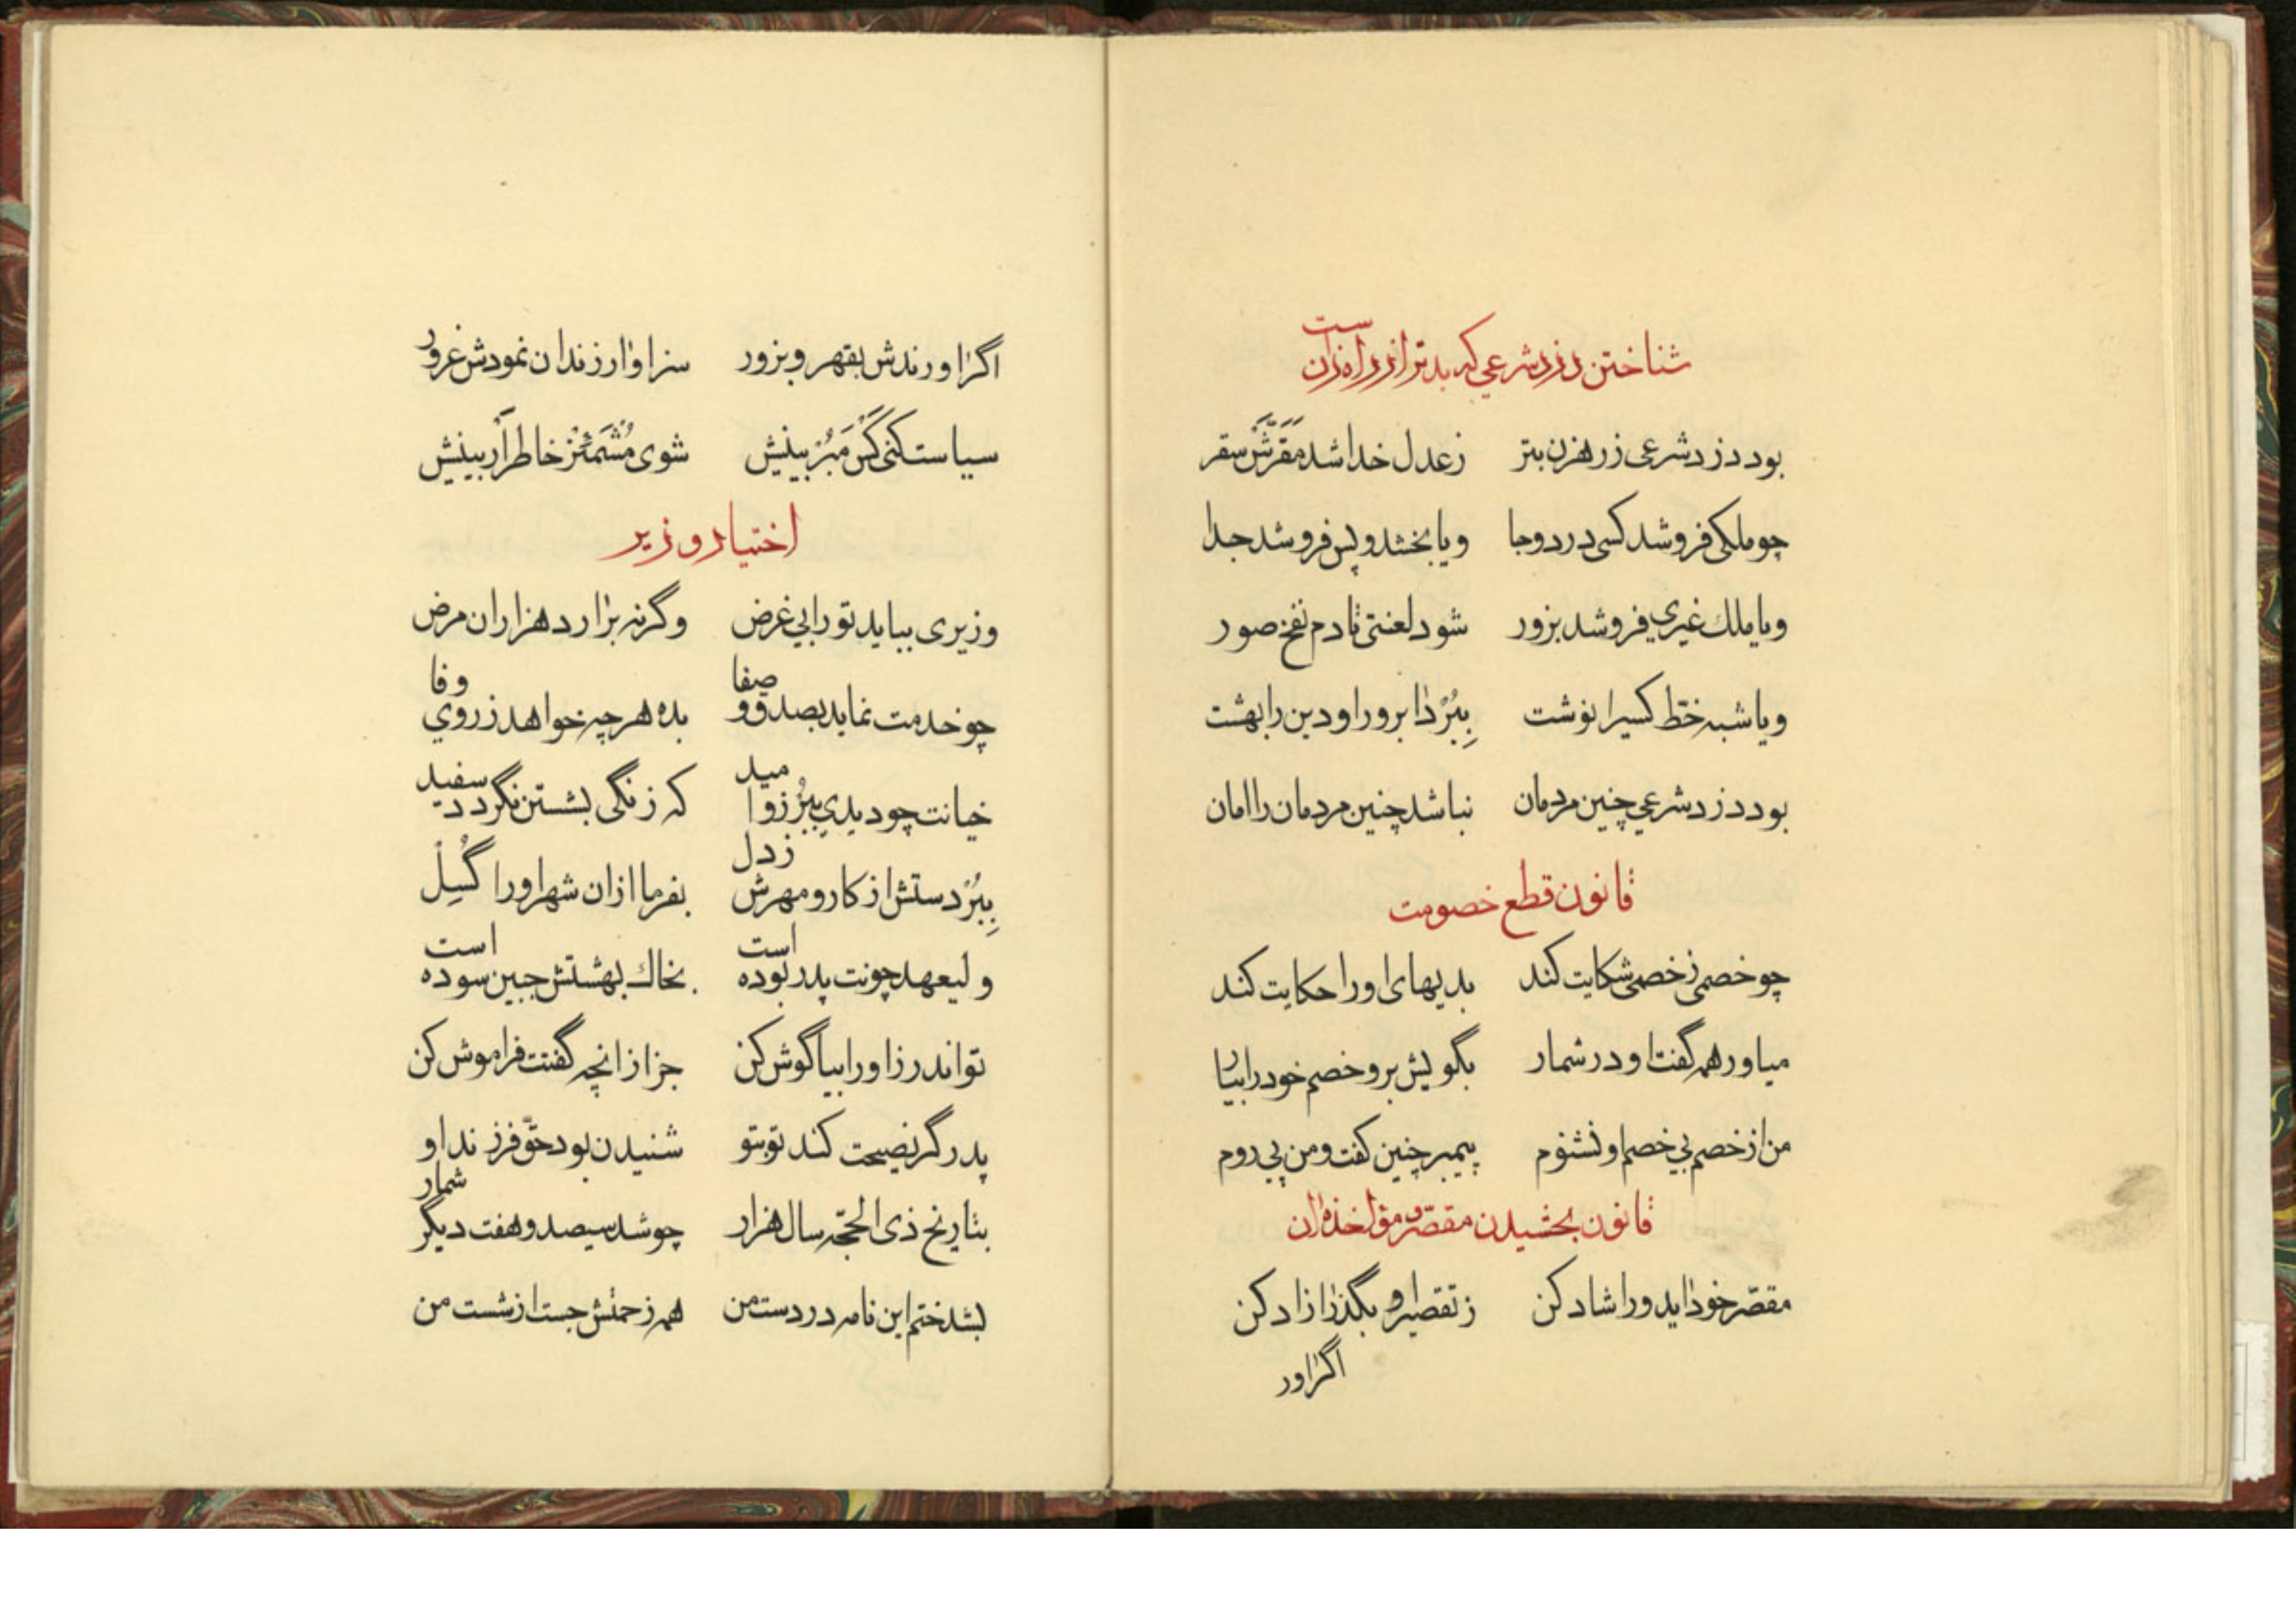 شناختن دزد شرعي که بدتر از دزد راه‌زنان است
بود دزد شرعی ز رهزن بتر زعدل خدا شد مَقَرَّش سقر
چو ملکی فروشد کسی در دو جا و یا بخشد و پس فروشد جدا
و یا ملك غیري فروشد بزور شود لعنتی تا دم نفخ صور
و یا شبه خطّ کسیرا نوشت بِبُرْد ابرو را و دین را بهشت
بود دزد شرعي چنین مردمان نباشد چنین مردمان را امان
قانون قطع خصومت
چو خصمی ز خصمی شکایت کند بدیهای او را حکایت کند
میاور همه گفت او در شمار بگویش برو خصم خود را بیار
من از خصم بي خصم او نشنوم پیمبر چنین کفت و من پی روم
قانون بخشیدن مقصّر و مؤاخذه آن
مقصّر خود آید ورا شاد کن ز تقصیر او بگذر آزاد کن
اگر آور
اگر آورندش بقهر و بزور سزاوار زندان نمودش غرور
سیاست کنی کَس مَبُرْ بینیش شوی مُشْمَئِزْ خاطر آر بینیش
اختیار وزیر
وزیری بباید تو را بی غرض وگرنه برآرد هزاران مرض
چو خدمت نماید بصدق و صفا بده هر چه خواهد ز روي وفا
خیانت چو دیدي بِبُرْ زو امید که زنگی بشستن نگردد سفید
بِبُرْ دستش از کار و مهرش ز دل بفرما ازان شهر او را گُسِیلْ
ولیعهد چونت پدر بوده است بخاك بهشتش جبین سوده است
تو اندرز او را بیا گوش کن جز از انچه گفتت فراموش کن
پدر گر نصیحت کند تو بتو شنیدن بود حقّ فرزند او
بتاریخ ذی الحجّه سال هزار چو شد سیصد و هفت دیگر شمار
بشد ختم این نامه در دست من همه زحمتش جست از شست من